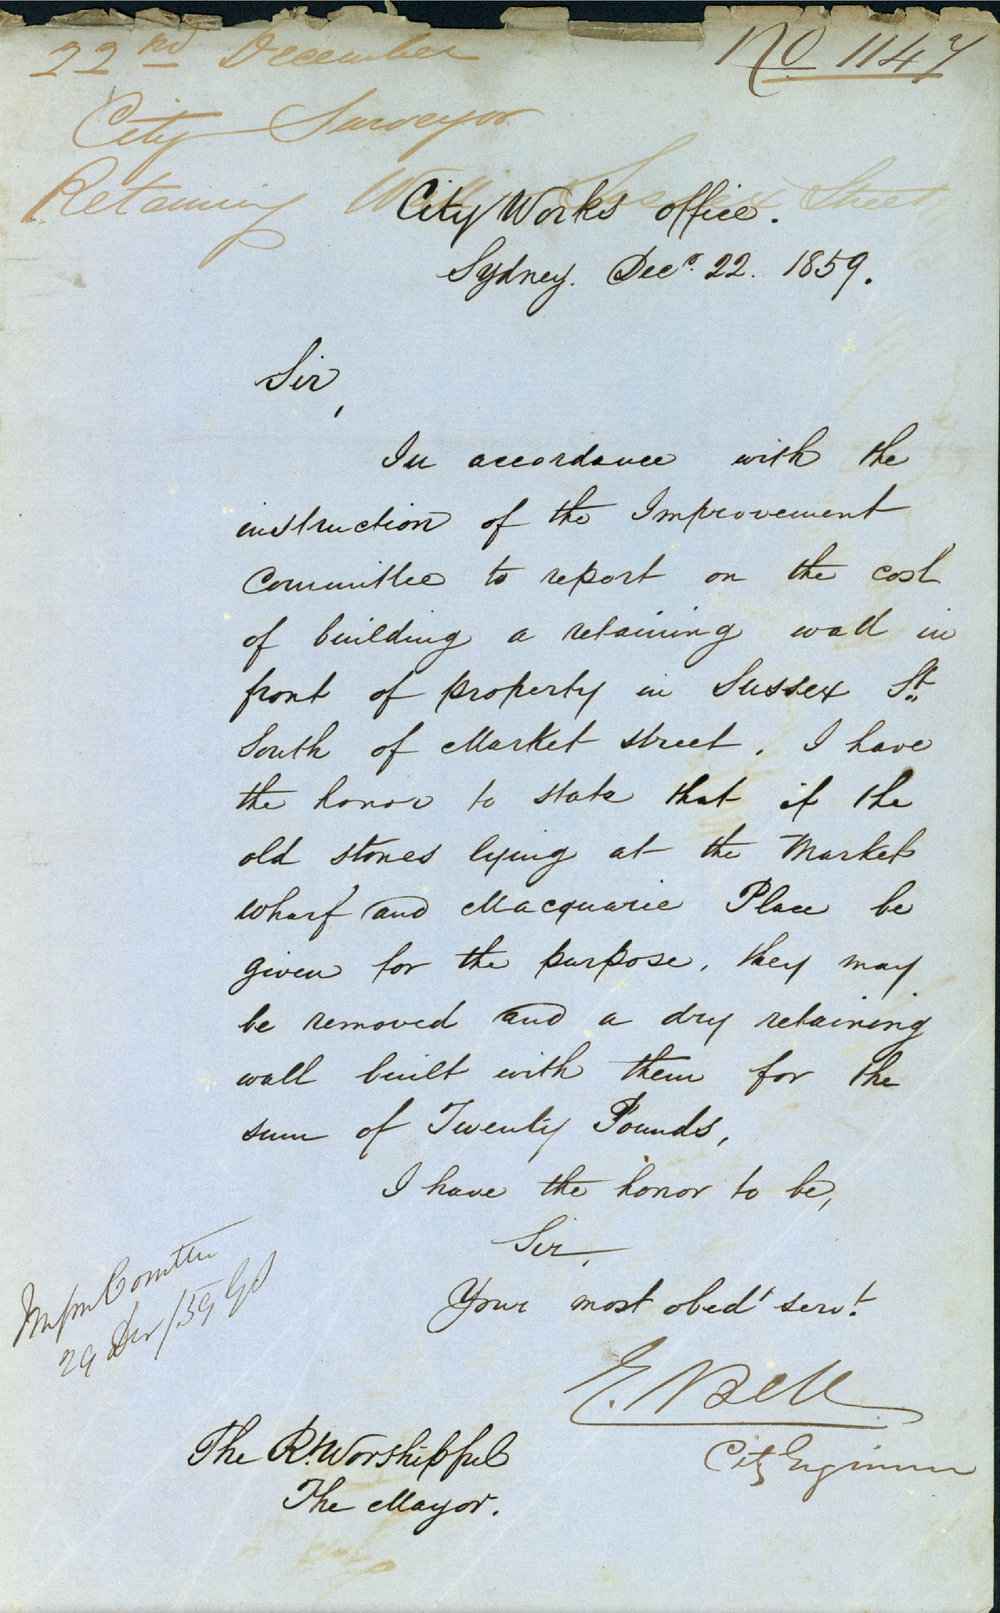 22nd December
No 1147
City Surveyor
Retaining Wall Sussex Street
City Works office.
Sydney. Decr. 22. 1859.
Sir,
In accordance with the
instruction of the Improvement
Committee to report on the cost
of building a retaining wall in
front of property in Sussex St.
South of Market street. I have
the honor to state that if the
old stones lying at the Market
Wharf and Macquarie Place be
given for the purpose, they may
be removed and a dry retaining
wall built with them for the
sum of Twenty Pounds,
I have the honor to be,
Sir,
Your most obedt servt.
E. Bell
City Engineer
Impm Comttee
29 Decr/59
The Rt Worshipful
The Mayor.